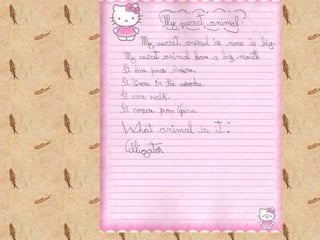 My secret animal.
My secret animal's nose is big.
My secret animal have a big mouth
It has four
It lives in the woods.
It can walk.
It comes from
What animal is it:
Alligator